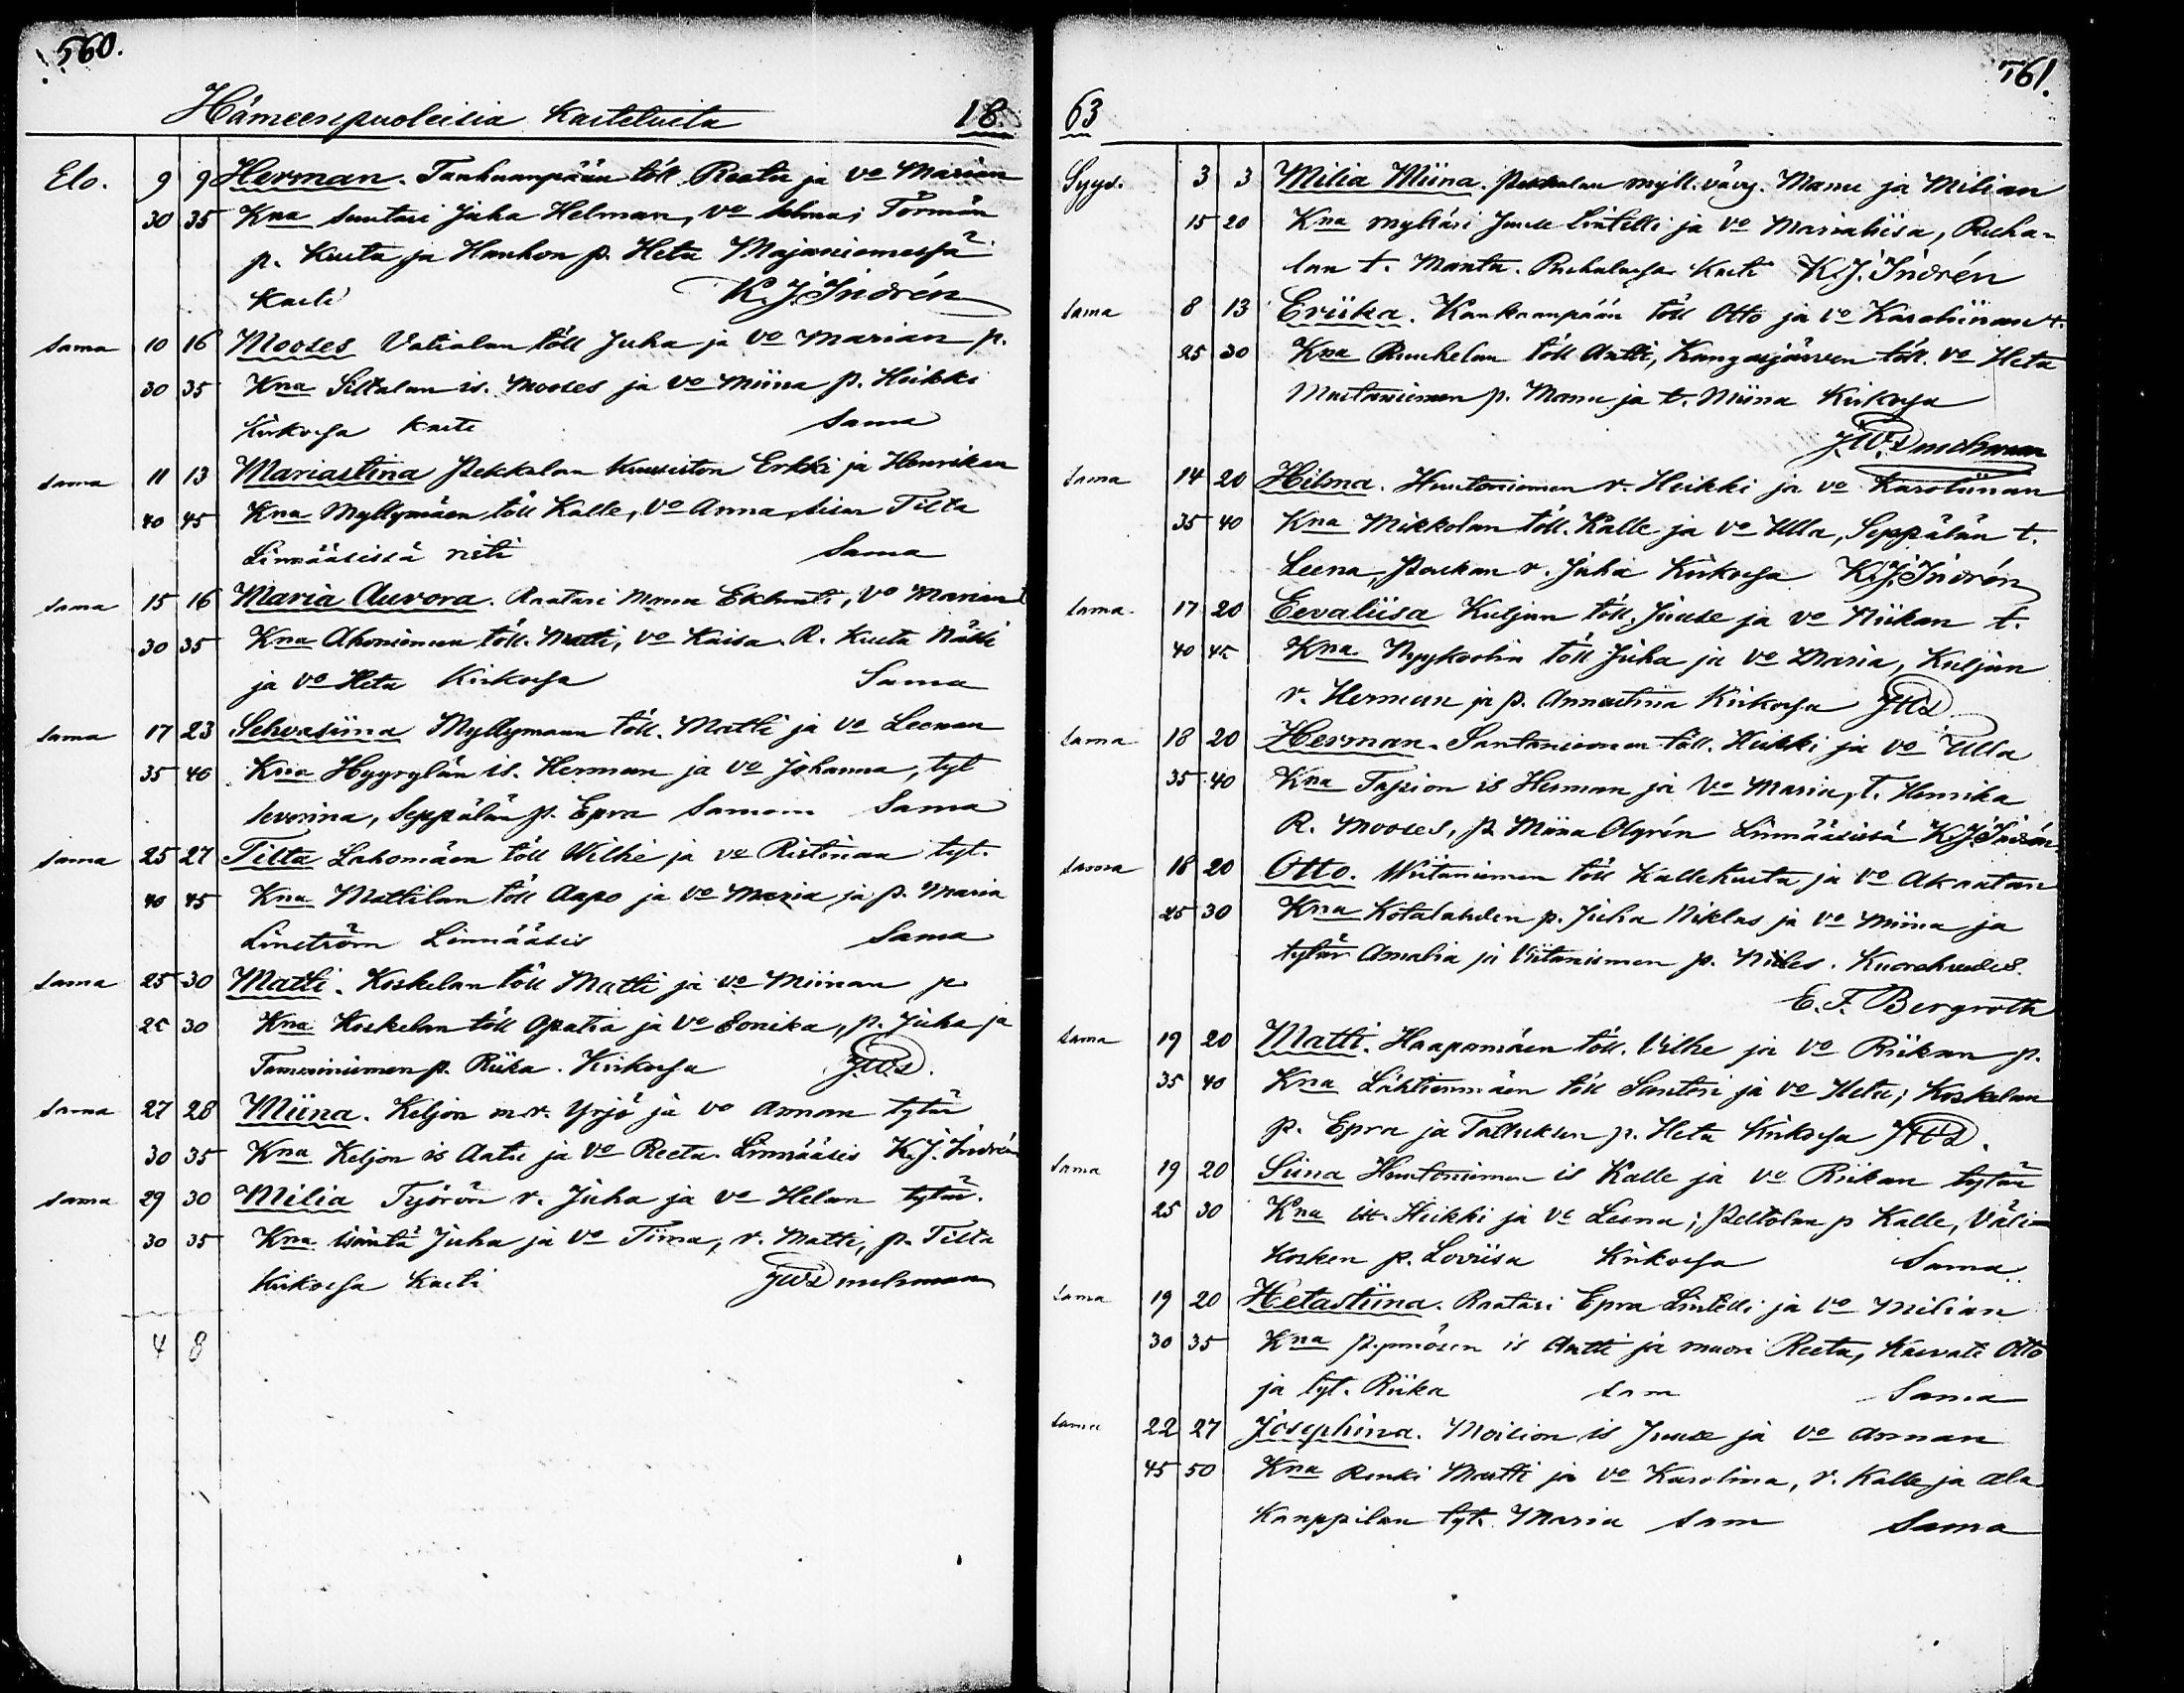 560.
Hämeenpuoleisia Kasteluita 18
Elo. 9 9 Herman. Tanhuanpään töll. Reetu ja vo Marian
30 35 Kna suutari Juha Helman, vo Selma; Törmän
p. Kusta ja Hanhon p. Heta Majaniemessä
Kasti K. J. Indrén
sama 10 16 Mooses Vatialan töll Juha ja vo Marian p.
30 35 Kna Siltalan is. Mooses ja vo Miina p. Heikki
Kirkossa kaste Sama
sama 11 13 Mariastina Pekkalan Erkki ja Henrikan
40 45 Kna Myllymäen töll Kalle, vo Anna, sisar Tilta
Linnääsissä risti Sama
sama 15 16 Maria Aurora. Raatari Manu Eklunti, vo Marian t
30 35 Kna Ahoniemen töll. Matti, vo Kaisa. R. Kusta
ja vo Heta Kirkossa Sama
sama 17 23 Myllymaan töll. Matti ja vo Leenan
35 40 Kna Hyyrylän is. Herman ja vo Johanna, tyt
Severina, Seppälän p. Epra Samoin Sama
sama 25 27 Tilta Lahomäen töll Wilhe ja vo Ristiinan tyt.
40 45 Kna Mattilan töll Aapo ja vo Maria ja p. Maria
Linström Linnääsis Sama
sama 25 30 Matti. Koskelan töll Matti ja vo Miinan p
25 30 Kna Koskelan töll Apatia ja vo Lovika, p. Juha ja
Tamminiemen p. Riika. Kirkossa JWD.
sama 27 28 Miina. Keljon m.r. Yrjö ja vo Annan tytär
30 35 Kna Keljon is Aatu ja vo Reeta. Linnääsis K. J. Indrén
sama 29 30 Milia Työrön r. Juha ja vo Helan tytär.
30 35 Kna isäntä Juha ja vo Tiina, r. Matti, p. Tilta
Kirkossa Kasti
4 8
561.
63
Syys. 3 3 Milia Miina. Pekkalan myll. värj. Manu ja Milian
15 20 Kna mylläri Juuse Lintilli ja vo Marialiisa, Ruha-
lan t. Manta. Ruhalassa Kasti K. J. Indrén
sama 8 13 Eriika. Kankaanpään töll Otto ja vo Karoliinan t.
25 30 Kna Ruuhelan töll Antti, Kangasjärven töll. vo Heta
Mustaniemen p. Manu ja t. Miina Kirkossa
sama 14 20 Hilma. Huutoniemen r. Heikki ja vo Karoliinan
35 40 Kna Mikkolan töll. Kalle ja vo Ulla, Seppälän t.
Leena, Poukan r. Juha Kirkossa K. J. Indrén
sama 17 20 Eevaliisa Kuljun töll, Juuse ja vo Riikan t.
40 45 Kna Nyykoolin töll Juha ja vo Maria, Kuljun
r. Herman ja p. Annastina Kirkossa JWD
sama 18 20 Herman. Santaniemen töll. Heikki ja vo Ulla
35 40 Kna Tapion is Herman ja vo Maria, t. Henrika
R. Mooses, p. Miina Olgrén Linnääsissä K. J. Indrén
sama 18 20 Otto. Wiitaniemen töll Kallekusta ja vo Akaatan
25 30 Kna Kotalahden p. Juha Niklas ja vo Miina ja
tytär Amalia ja Viitaniemen p. Niiles. Kuorehvedes.
E. F. Bergroth
sama 19 20 Matti. Haapamäen töll. Vilhe ja vo Riikan p.
35 40 Kna Lähtienmäen töll Santeri ja vo Heta; Koskelan
p. Epra ja Talluksen p. Heta Kirkossa JWD.
sama 19 20 Siina Huutoniemen is Kalle ja vo Riikan tytär
25 30 Kna is. Heikki ja vo Leena; Peltolan p Kalle, Väli-
kosken p. Loviisa Kirkossa Sama
sama 19 20 Hetastiina. Raatari Epra Lintilli ja vo Milian
30 35 Kna is Antti ja muori Reeta, Otto
ja tyt. Riika sam Sama
sama 22 27 Josephina. Moision is Juuse ja vo Annan
45 50 Kna Renki Matti ja vo Karolina, r. Kalle ja Ala
Kauppilan tyt. Maria sam Sama